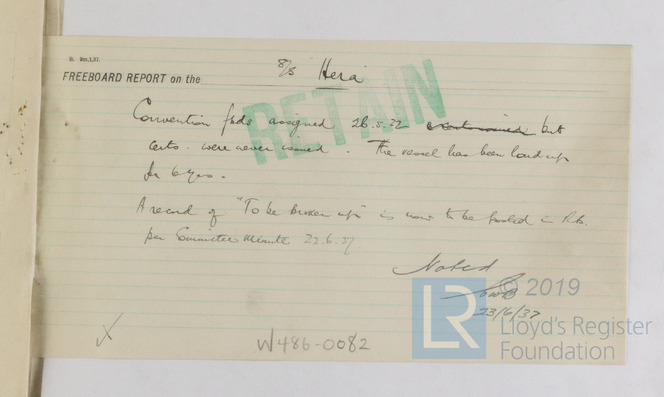 FREEBOARD REPORT on the S/S Hera
RETAIN
Convention fbds assigned 26.5.32 but
certs. were never issued. The vessel has been laid up
for 6 yrs.
A record of "To be broken up" is now to be posted in R.B.
per Committee Minute 22.6.37
Noted
23/6/37
W486-0082
LR © 2019
Lloyd's Register
Foundation